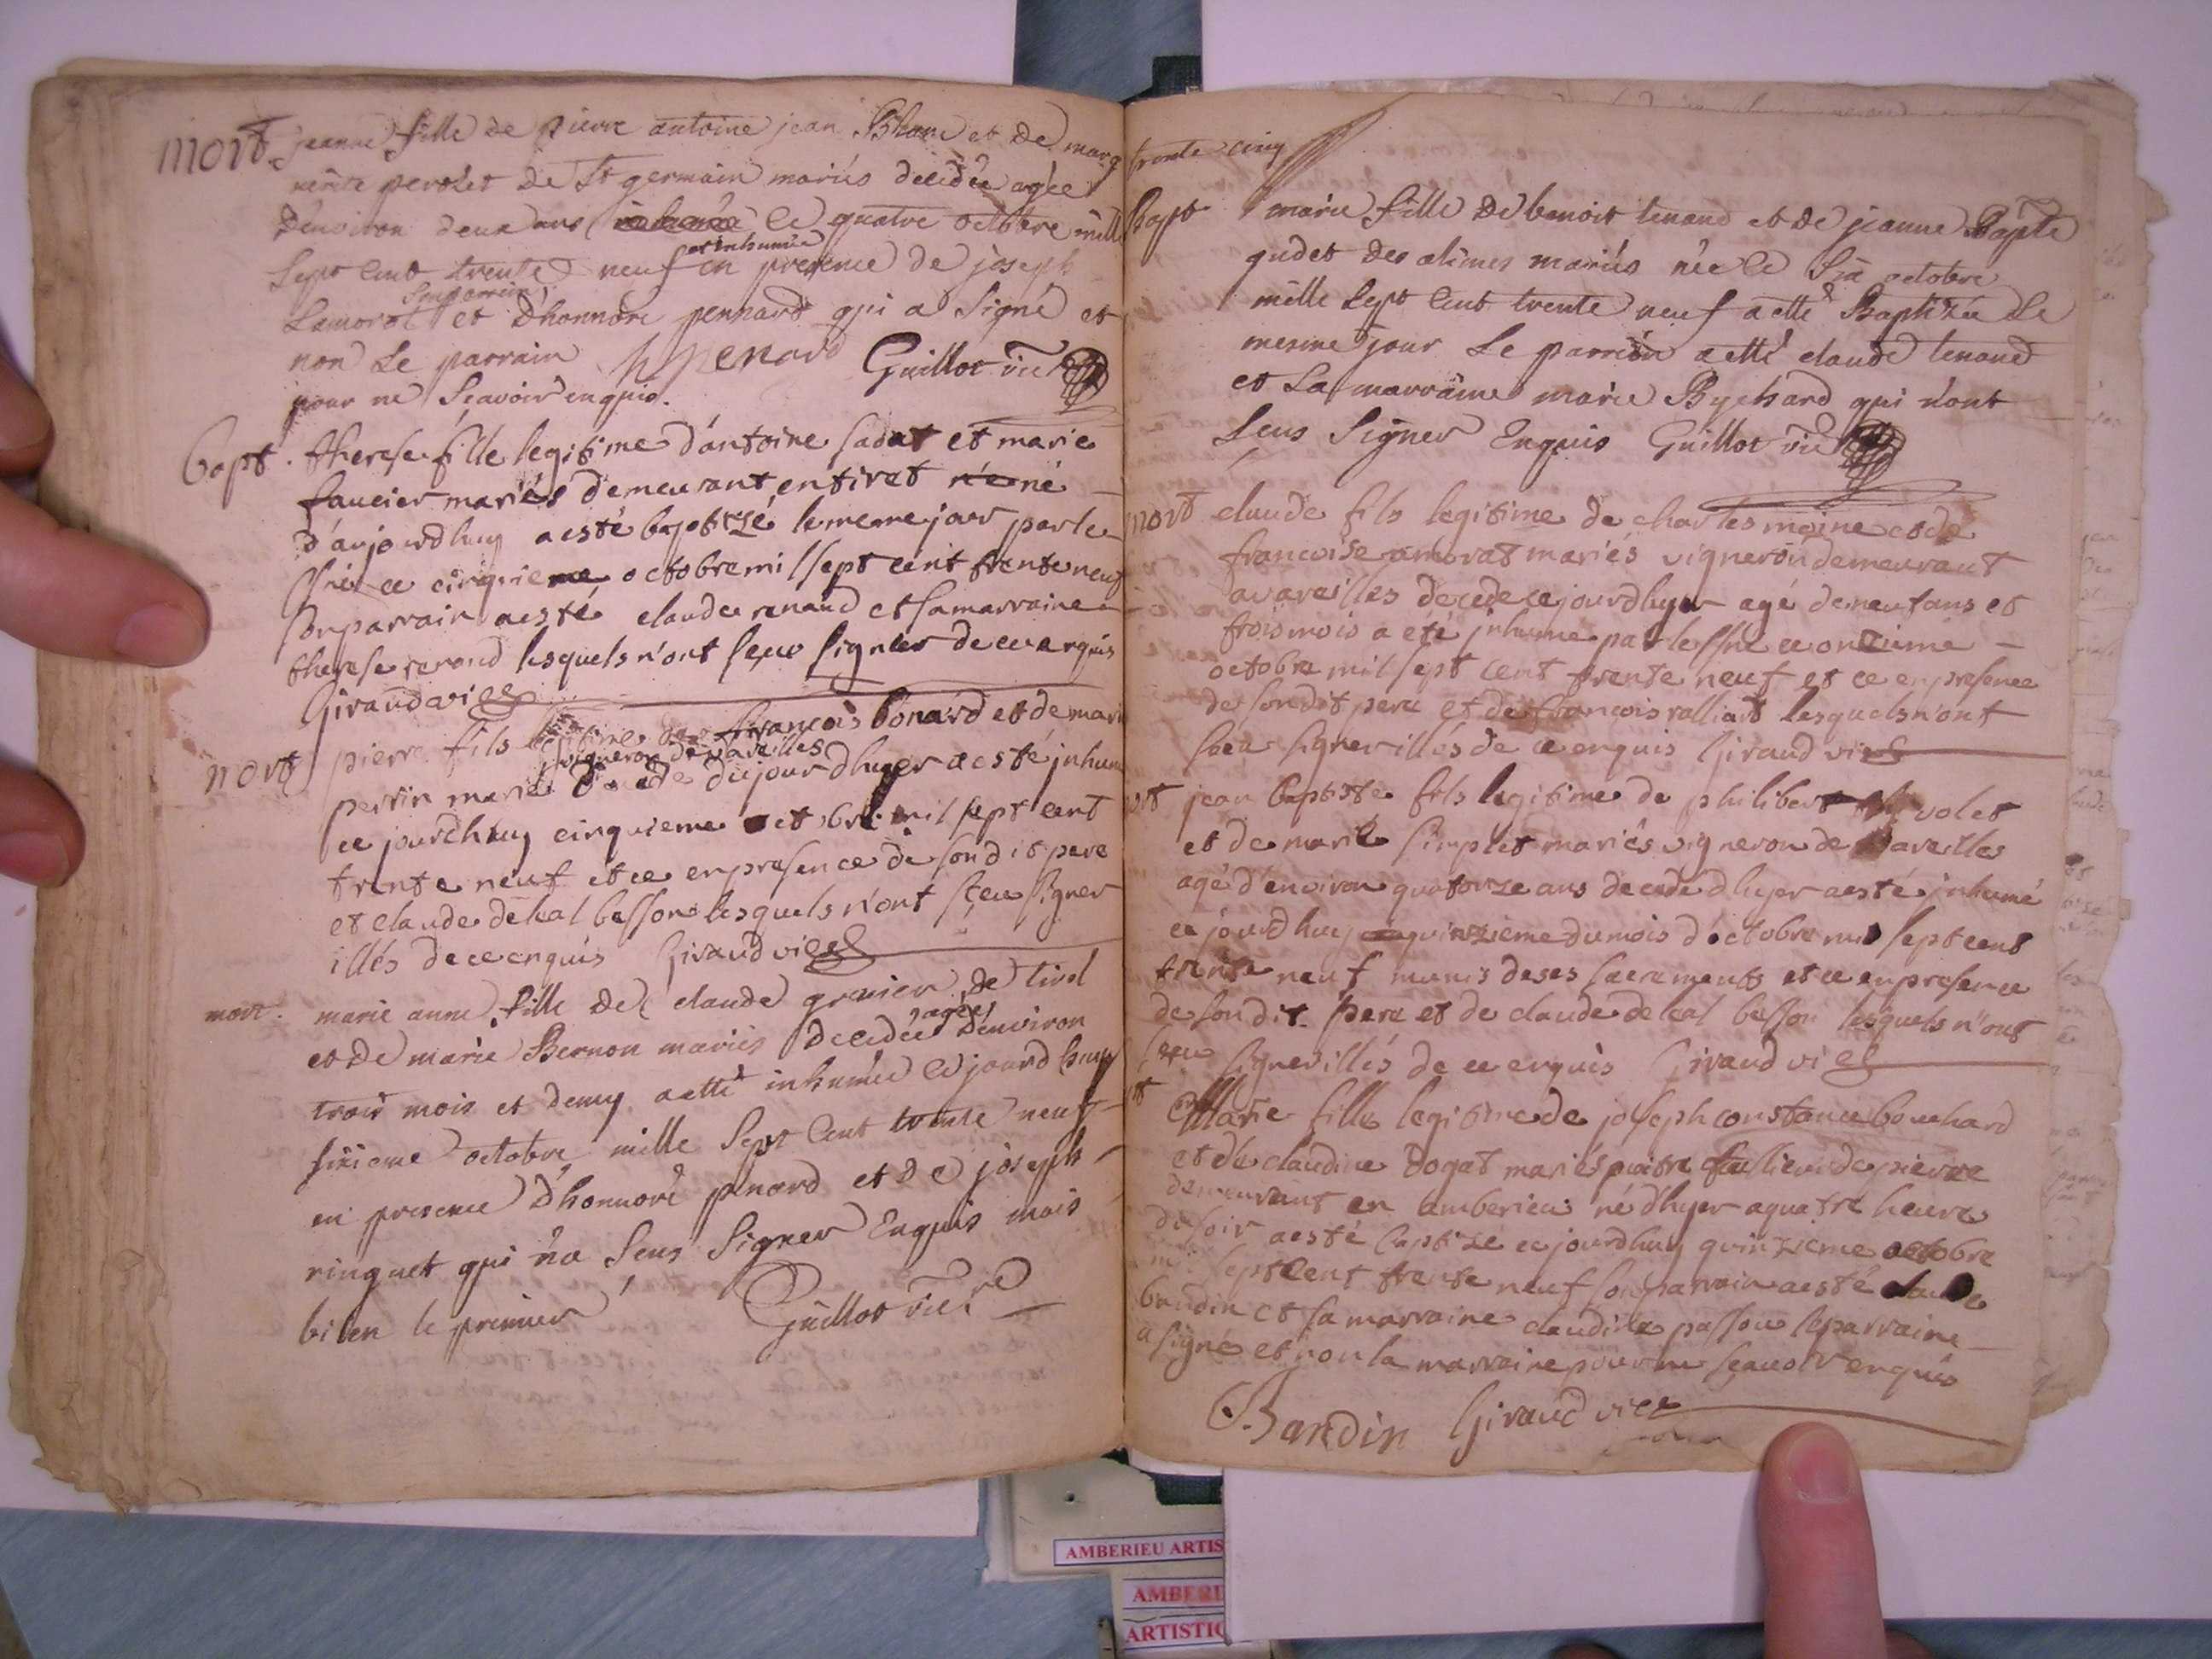 mort. jeanne fille de pierre antoine jean Blanc et de marg
rerite perolet de St germain mariés décédée agée
d'environ deux ans le quatre octobre mille
et inhumée
Sept Cent trente neuf en presence de joseph
Son parrain
Lamorat et d'honnore pennard qui a Signé et
non Le parrain h penard Guillot vic
pour ne Scavoir enquis.
bapt. therese fille legitime d'antoine sadat et marie
faucier mariés demeurant en tiret né
d'aujourdhuy a esté baptizé le meme jour par le
Sne ce cinquieme octobre mil sept cent trente neuf
Son parrain a esté claude renaud et sa marraine
therese renaud lesquels n'ont sçeu signer de ce enquis
Giraud vic
mort pierre fils legitime de françois bonard et de marie
vigneron de vareilles
perrin mariés decede du jour dhyer a esté inhumé
ce jourdhuy cinquieme octobre mil sept cent
trente neuf et ce en presence de son dit pere
et claude deleal besson lesquels n'ont sçeu signer
illés de ce enquis Giraud vic
mort. marie anne fille de claude grenier de tiret
agée
et de marie Bernon mariés décédée d'environ
trois mois et demy a etté inhumée ce jourd huy
sixieme octobre mille Sept Cent trente neuf
en presence d'honnoré penard et de joseph
ringuet qui n'a Seus Signer Enquis mais
bien le premier Guillot vicre
trente cinq
bapt marie fille de benoit tenand et de jeanne Bapte
gudet des alimes mariés née le Six octobre
mille Sept Cent trente neuf a etté Baptizée Le
mesme jour Le parrain a etté claude tenand
et La marraine marie Bychard qui n'ont
Seus Signer Enquis Guillot vic
mort claude fils legitime de charles moine et de
francoise amorat mariés vigneron demeurant
a vareilles decede ce jourdhyer agé de neuf ans et
trois mois a eté inhume par le Sne ce onzieme
octobre mil sept cent trente neuf et ce en presence
de son dit pere et de francois ralliart lesquels n'ont
sceu signer illés de ce enquis Giraud vic
jean baptiste fils legitime de philibert volet
et de marie simplet mariés vigneron de vareilles
agé d'environ quatorze ans decedé dhyer a esté inhumé
ce jourd huy quinzieme du mois d'octobre mil sept cent
trente neuf munis de ses sacrements et ce en presence
de son dit pere et de claude deleal besson lesquels n'ont
sçeu signer illés de ce enquis Giraud vic
Marie fille legitime de joseph constance bouchard
et de claudine dogat mariés de pierre
demeurant en amberieu né dhyer a quatre heures
du soir a esté baptizé ce jourdhuy quinzieme octobre
mil sept cent trente neuf son parrain a esté claude
baudin et sa marraine claudine passou le parraine
a signé et non la marraine pour ne sçavoir enquis
C Bandin Giraud vic
AMBERIEU ARTIS
AMBERI
ARTISTIC